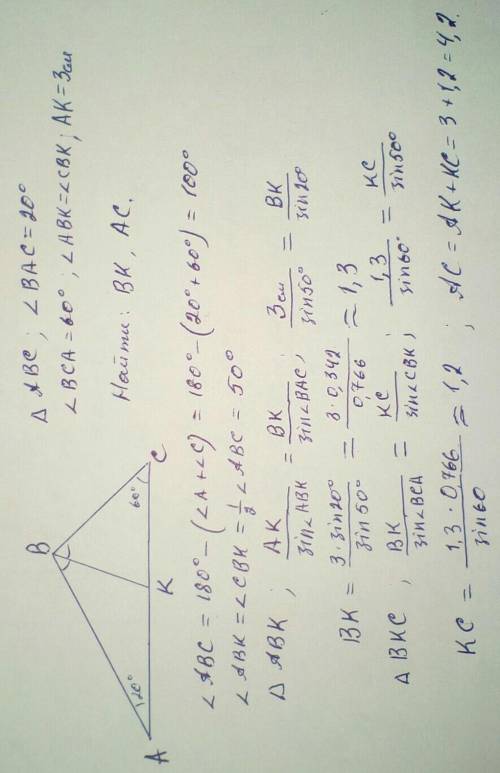 △ ABC ; ∠BAC = 20°
∠BCA = 60° ; ∠ABK = ∠CBK ; AK = 3см
Найти: BK, AC.
B
20°
60°
A
K
C
∠ABC = 180° − (∠A + ∠C) = 180° − (20° + 60°) = 100°
∠ABK = ∠CBK = 1/2 ∠ABC = 50°
△ ABK ; AK/sin∠ABK = BK/sin∠BAC ; 3см/sin50° = BK/sin20°
BK = 3·sin20°/sin50° = 3·0,342/0,766 ≈ 1,3
△ BKC , BK/sin∠BCA = KC/sin∠CBK ; 1,3/sin60° = KC/sin50°
KC = 1,3·0,766/sin60 ≈ 1,2 ; AC = AK + KC = 3 + 1,2 = 4,2.